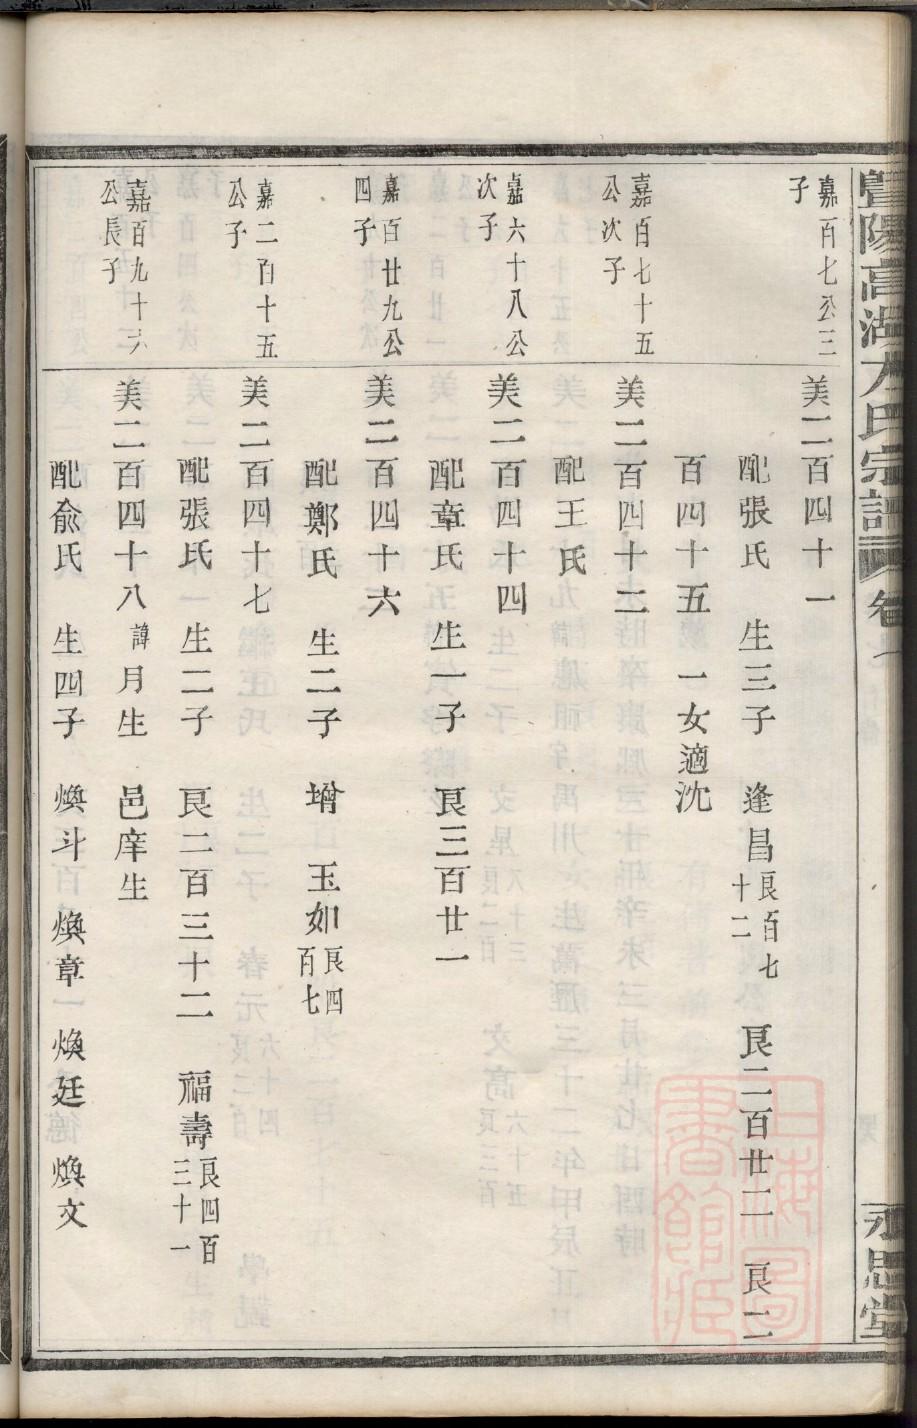 暨陽高湖方氏宗譜 卷七 永思堂
嘉百七公三子
美二百四十一
配張氏 生三子 逢昌良百七十二 良二百廿二 良二
百四十五 一女適沈
嘉百七十五公次子
美二百四十二
配王氏
嘉六十八公次子
美二百四十四
配章氏 生一子 良三百廿一
嘉百廿九公四子
美二百四十六
配鄭氏 生二子 增 玉如良四百七
嘉二百十五公子
美二百四十七
配張氏 生二子 良二百三十二 福壽良四百三十一
嘉百九十六公長子
美二百四十八諱月生 邑庠生
配俞氏 生四子 煥斗 煥章 煥廷 煥文